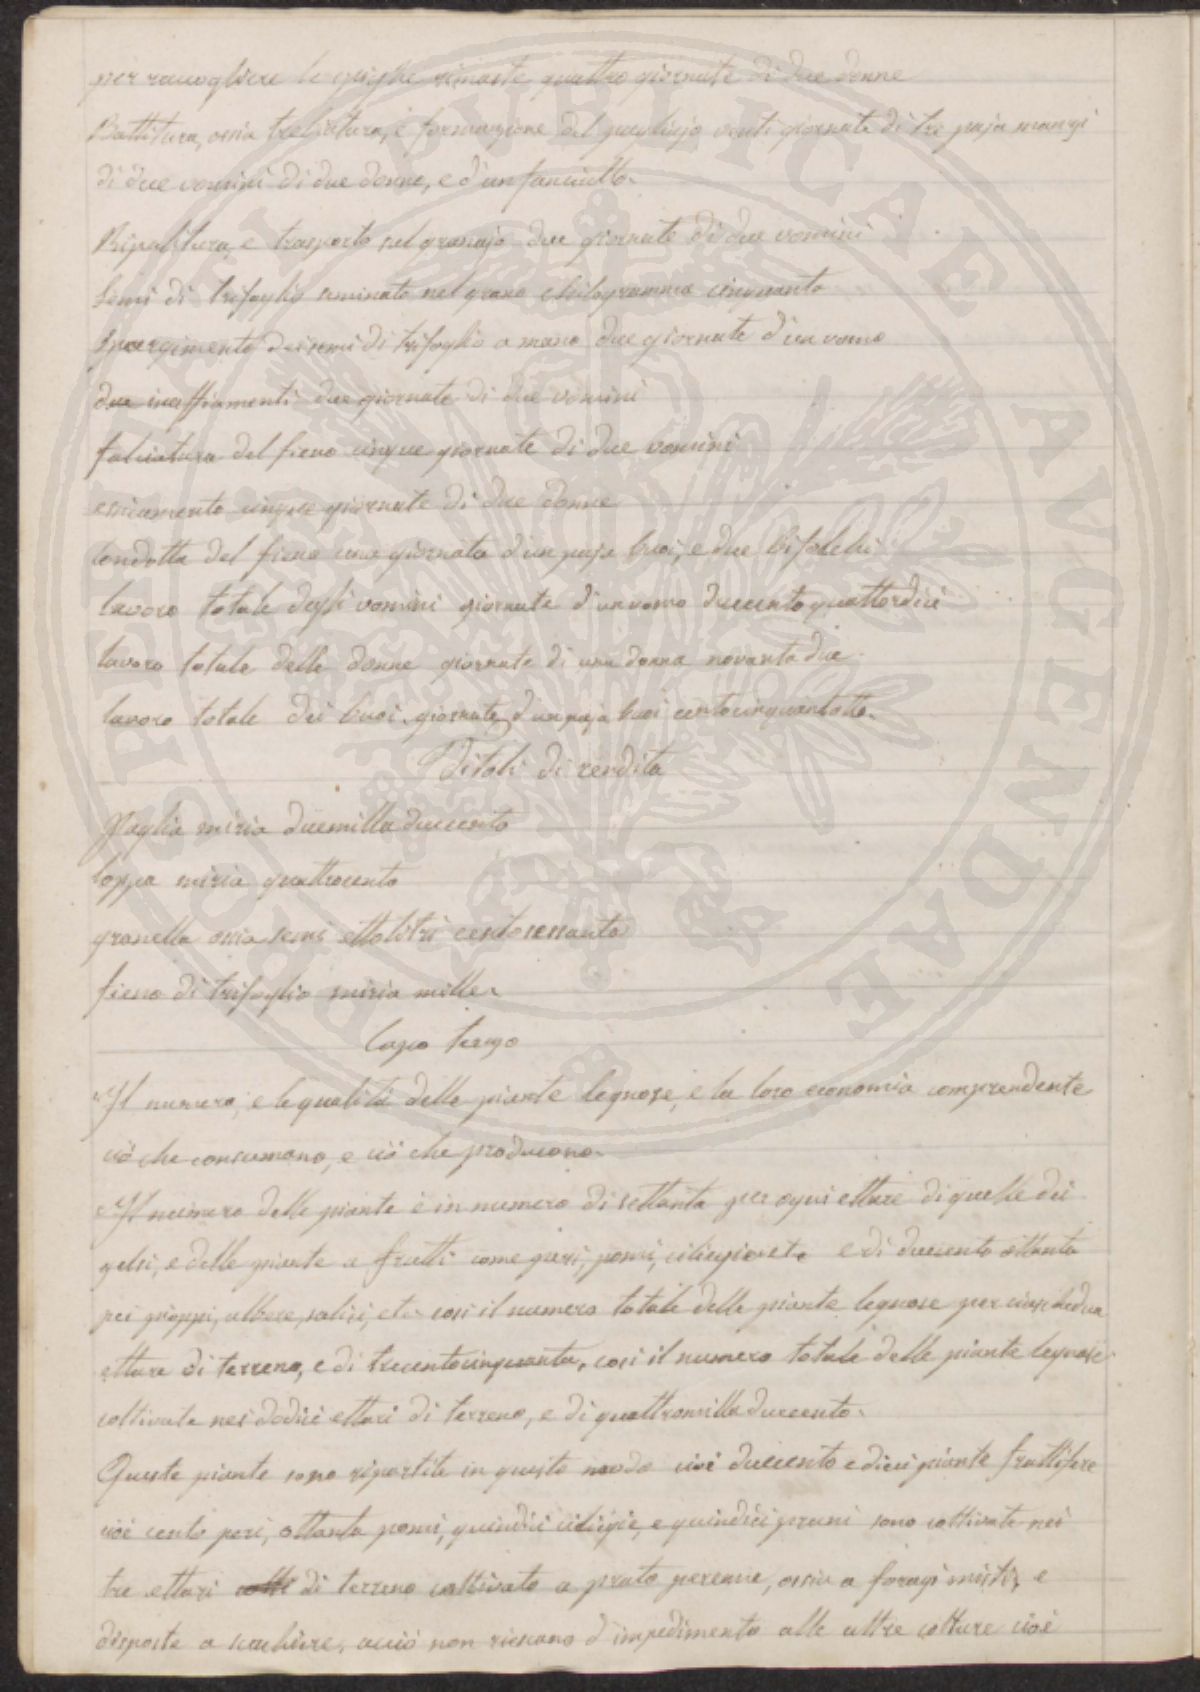 per raccogliere le spighe rimaste quattro giornate di due donne
Battitura, ossia trebiatura, e formazione del pagliajo venti giornate di tre paja manzi
di due uomini di due donne, e d'un fanciullo.
Ripulitura, e trasporto nel granajo due giornate di due uomini
Semi di trifoglio seminato nel grano chilogramma cinquanta
Spargimento dei semi di trifoglio a mano due giornate d'un uomo
due inaffiamenti due giornate di due uomini
falciatura del fieno cinque giornate di due uomini
essicamento cinque giornate di due donne
Condotta del fieno una giornata d'un pajo buoi, e due bifolchi
lavoro totale degli uomini giornate d'un uomo duecentoquattordici
lavoro totale delle donne giornate di una donna novantadue
lavoro totale dei buoi giornate d'un pajo buoi centocinquantotto.
Titoli di rendita
Paglia miria duemilladuecento
loppa miria quattrocento
granella ossia semi ettolitri centosessanta
fieno di trifoglio miria mille.
Capo terzo
"Il numero, e le qualità delle piante legnose, e la loro economia comprendente
ciò che consumano, e ciò che producono.
"Il numero delle piante è in numero di settanta per ogni ettare di quelle dei
gelsi, e delle piante a frutti come peri, pomi, ciliegi ecc. e di duecento ottanta
pei pioppi, albere, salici, etc. così il numero totale delle piante legnose per ciaschedun
ettare di terreno, e di trecentocinquanta, così il numero totale delle piante legnose
coltivate nei dodici ettari di terreno, e di quattromilladuecento.
Queste piante sono ripartite in questo modo cioè duecento e dieci piante fruttifere
cioè cento peri, ottanta pomi, quindici ciliegie, e quindici pruni sono coltivate nei
tre ettari di terreno coltivato a prato perenne, ossia a foragi misti, e
disposte a scachiere, acciò non riescano d'impedimento alle altre colture cioè
PROSPERITATI PVBLICAE AVGENDAE